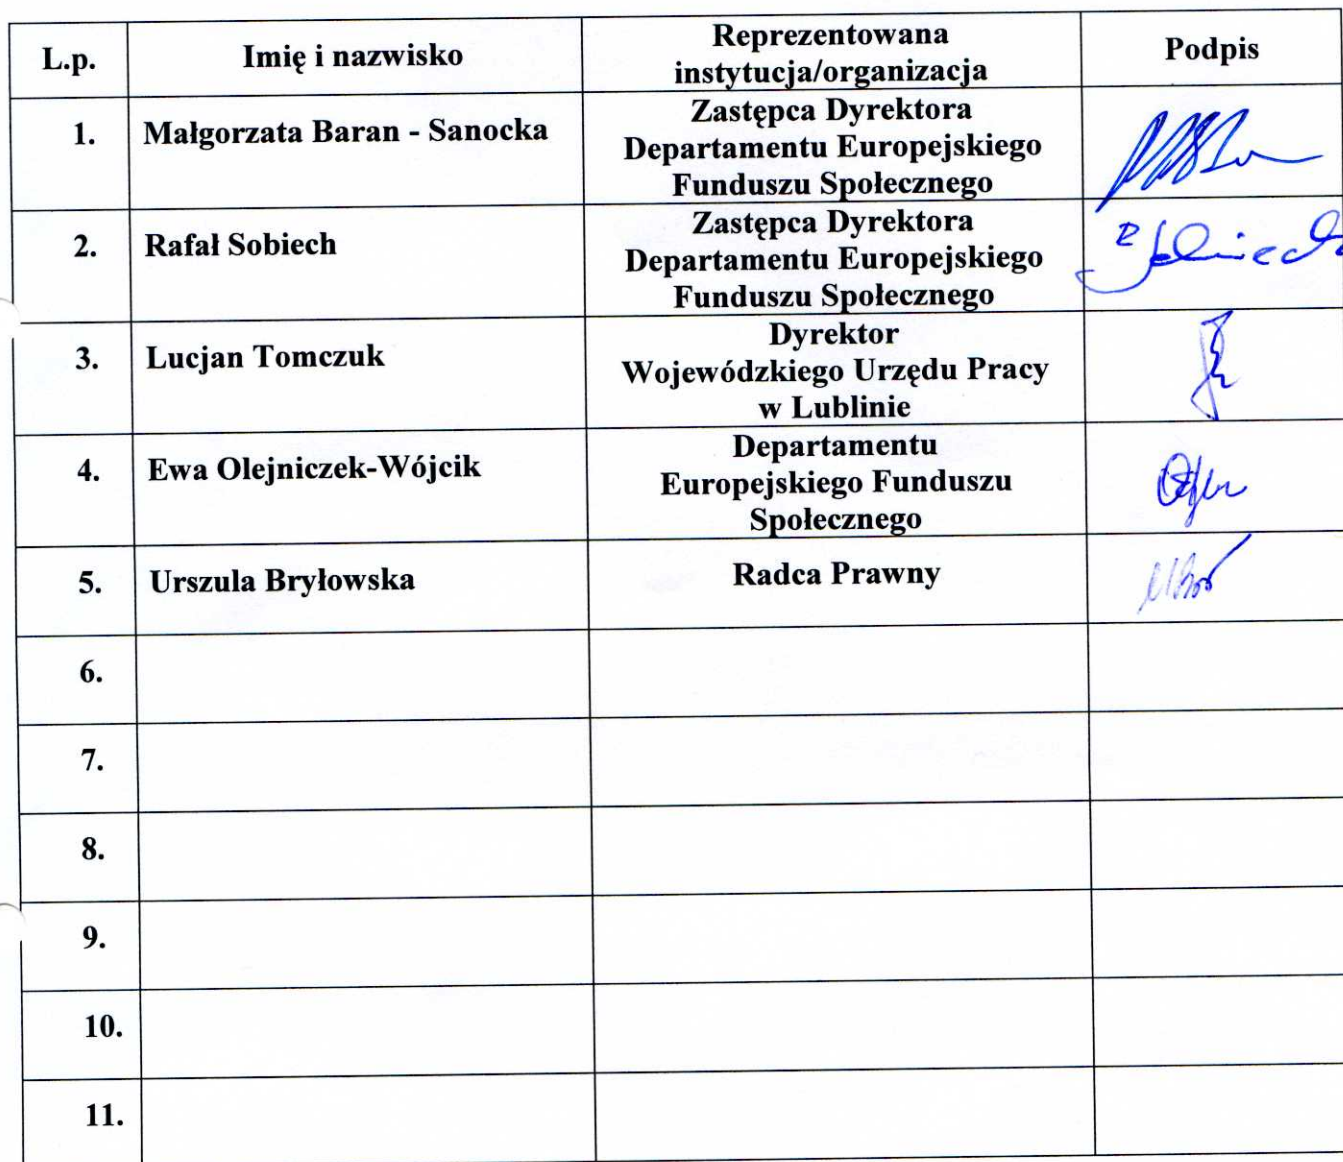 L.p.
Imię i nazwisko
Reprezentowana
instytucja/organizacja
Podpis
1.
Małgorzata Baran - Sanocka
Zastępca Dyrektora
Departamentu Europejskiego
Funduszu Społecznego
2.
Rafał Sobiech
Zastępca Dyrektora
Departamentu Europejskiego
Funduszu Społecznego
3.
Lucjan Tomczuk
Dyrektor
Wojewódzkiego Urzędu Pracy
w Lublinie
4.
Ewa Olejniczek-Wójcik
Departamentu
Europejskiego Funduszu
Społecznego
5.
Urszula Bryłowska
Radca Prawny
6.
7.
8.
9.
10.
11.